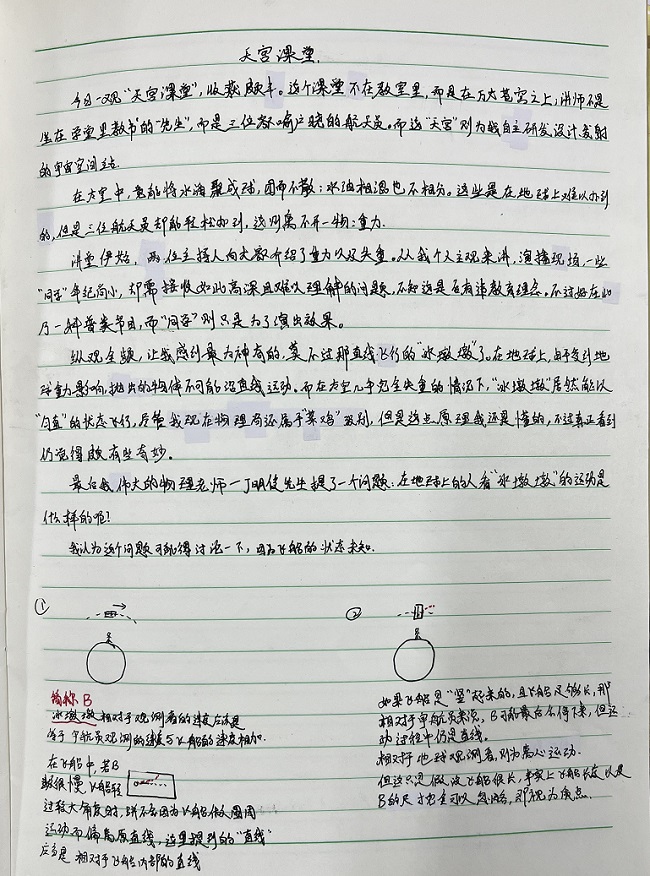 天宫课堂.
今日一观“天宫课堂”,收获颇丰。这个课堂不在教室里,而是在万丈苍穹之上,讲师不是
坐在学堂里教书的“先生”,而是三位家喻户晓的航天员。而这“天宫”则为我自主研发设计、发射
的宇宙空间站.
在太空中,竟能将水海聚成球,团而不散;水油相混也不相分。这些是在地球上难以办到
的,但是三位航天员却能轻松办到,这则离不开一物:重力.
讲堂伊始,两位主持人向大家介绍了重力以及失重。从我个人主观来讲,演播现场,一些
“同学”年纪尚小,却需接收如此高深且难以理解的问题,不知这是否有违教育理念。不过好在此
乃一种普类节目,而“同学”则只是为了演出效果。
纵观全频,让我感到最为神奇的,莫不过那直线飞行的“冰墩墩”了。在地球上,由于受到地
球重力影响,抛出的物体不可能沿直线运动。而在太空几乎完全失重的情况下,“冰墩墩”居然能以
“匀直”的状态飞行,尽管我现在物理尚还属于“菜鸡”级别,但是这点原理我还是懂的,不过真正看到
仍觉得颇有些奇妙。
最后我伟大的物理老师丁明俊先生提了一个问题:在地球上的人看“冰墩墩”的运动是
什么样的呢?
我认为这个问题可能得讨论一下,因为飞船的状态未知.
① ②
简称B
冰墩墩相对于观测者的速度应该是
等于宇航员观测的速度与飞船的速度相加.
在飞船中,若B
飘很慢,飞船转
过较大角度时,并不会因为飞船做圆周
运动而偏离原直线,这里提到的“直线”
应当是相对于飞船内部的直线
如果飞船是“竖”起来的,且飞船足够长,那
相对于宇航员来说,B可能最后会停下来,但运
动过程中仍是直线.
相对于地球观测者,则为离心运动.
但这只是假设飞船很长,事实上飞船长度以及
B的尺寸完全可以忽略,即视为质点.